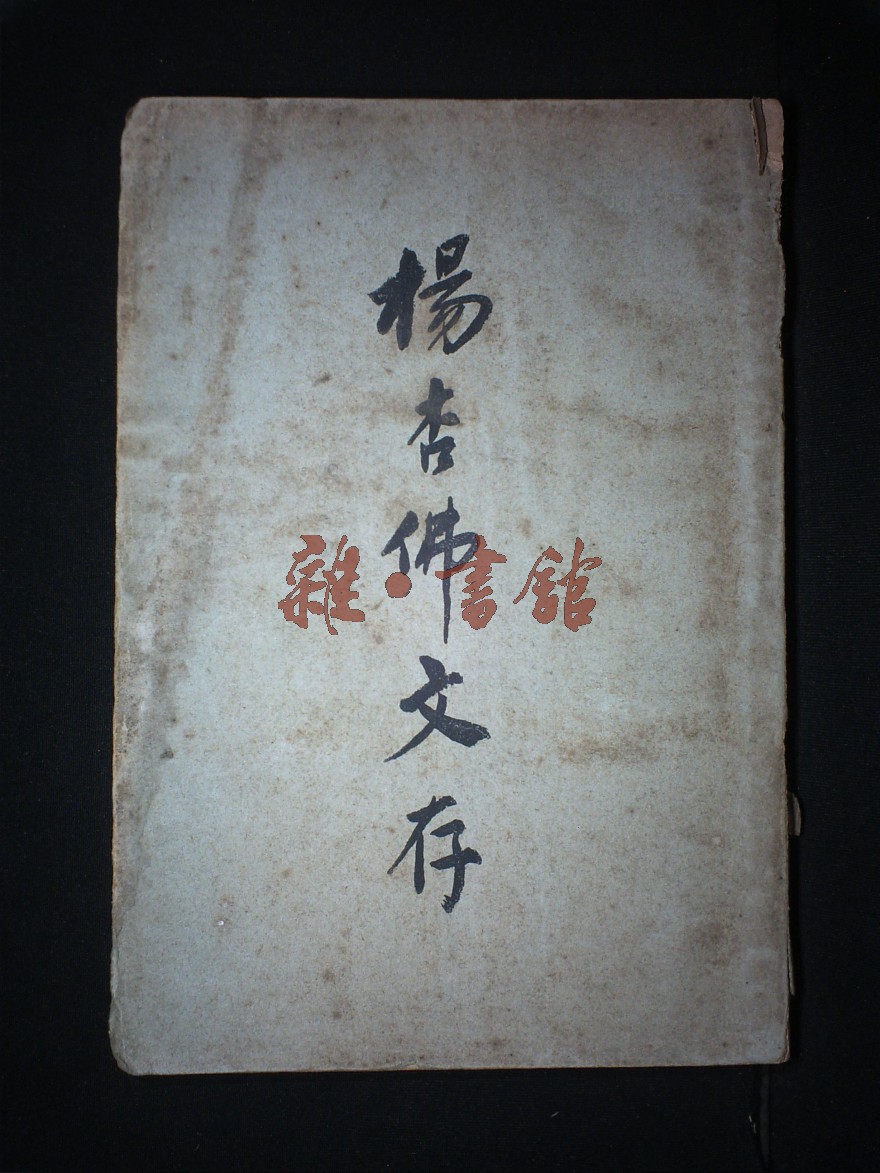 楊杏佛文存
雜·書館